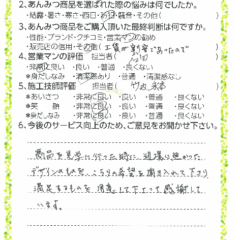 2.あんみつ商品を選ばれた際の悩みは何でしたか？
・結露・暑さ・寒さ・西日・お目隠・騒音・その他( )
3.あんみつ商品をご購入頂いた最終判断は何ですか。
・性能・ブランド・クチコミ・営業マンの勧め
・販売店の信用・その他( 工事が割安であったので
4.営業マンの評価 担当者( )
・非常に良い ・良い ・普通 ・良くない
★身だしなみ ・清潔感あり ・普通 ・清潔感なし
5.施工技師評価 担当者(
★あいさつ ・非常に良い ・良い ・普通 ・良くない
★笑 顔 ・非常に良い ・良い ・普通 ・良くない
★身だしなみ ・非常に良い ・良い ・普通 ・良くない
6.今後のサービス向上のため、ご意見をお聞かせ下さい。
商品を見学に行った時に、現場に合わせた
デザインのものを、こちらの希望を聞き入れて下さり
満足するものを 用意して下さって感謝して
います。